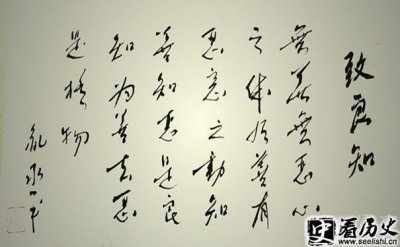 致良知
無善無惡心
之体有善有
惡意之動知
善知惡是良
知为善去惡
是格物
看历史
www.seelishi.cn